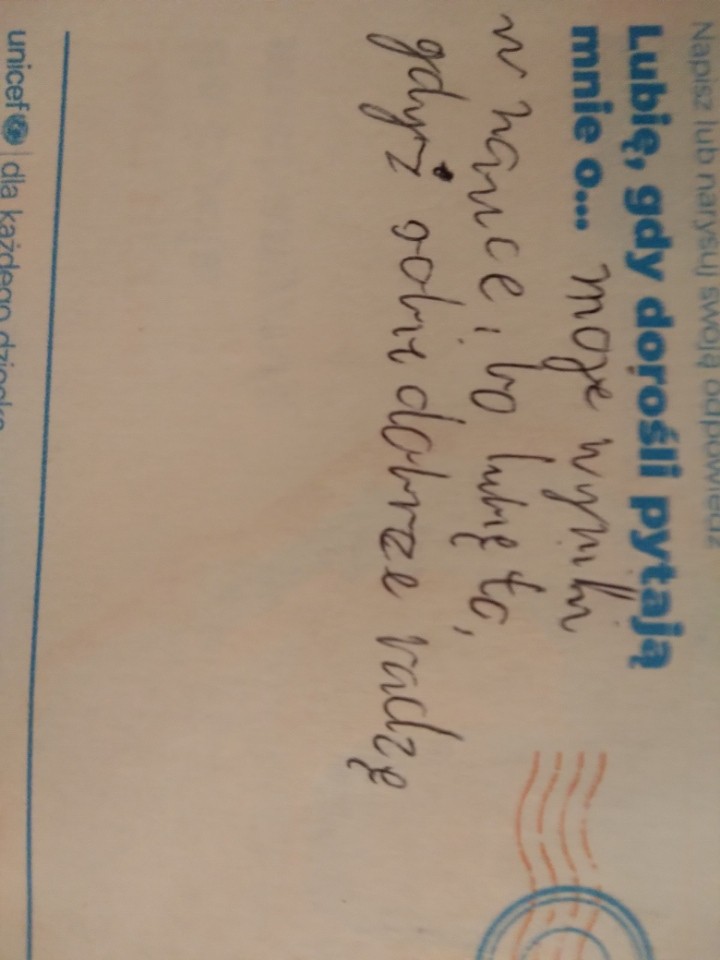 Napisz lub narysuj swoją odpowiedź
Lubię, gdy dorośli pytają
mnie o... moje wyniki
w nauce, bo lubię to,
gdyż sobie dobrze radzę
unicef | dla każdego dziecka